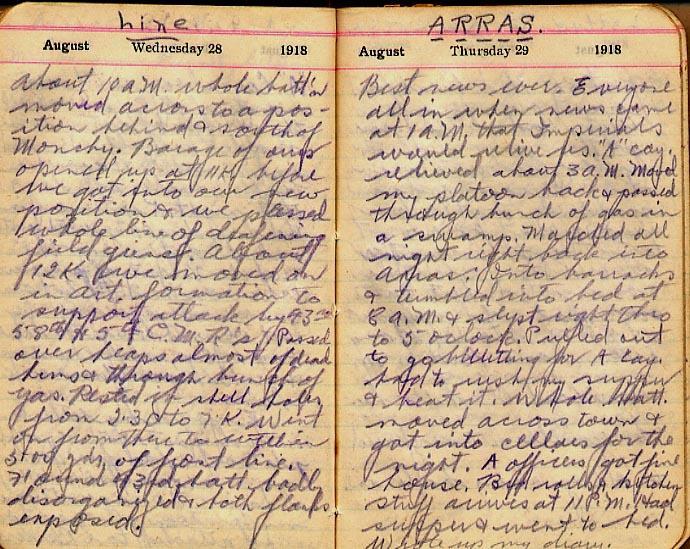 Line
August Wednesday 28 1918
about 10 a.M. whole batt'n
moved across to a pos-
ition behind & south of
Monchy. Barage of ours
opened up at 11K. before
we got into our new
position & we passed
whole line of
field guns. About
12K. we moved on
in Art. formation to
support attack by 43rd
58th & 5th C.M.R's. Passed
over heaps almost of dead
huns & through bunch of
gas. Rested in shell holes
from 2.30 to 7K. Went
on from there to within
500 yds of front line.
Found 43rd batt. badly
disorganized & both flanks
exposed.
ARRAS.
August Thursday 29 1918
Best news ever. Everyone
all in when news came
at 1 a.M. that Imperials
would relieve us. "A" coy.
relieved about 3 a.M. Moved
my platoon back & passed
through bunch of gas in
a swamp. Marched all
night right back into
Arras. Into barracks
& tumbled into bed at
8 a.M. & slept right thro
to 5 oclock. Pulled out
to go billeting for A coy.
had to rush my supper
& beat it. Whole batt.
moved across town &
got into cellars for the
night. A officers got fine
house. Bed rolls & kitchen
stuff arrives at 11 P.M. Had
supper & went to bed.
Wrote up my diary.